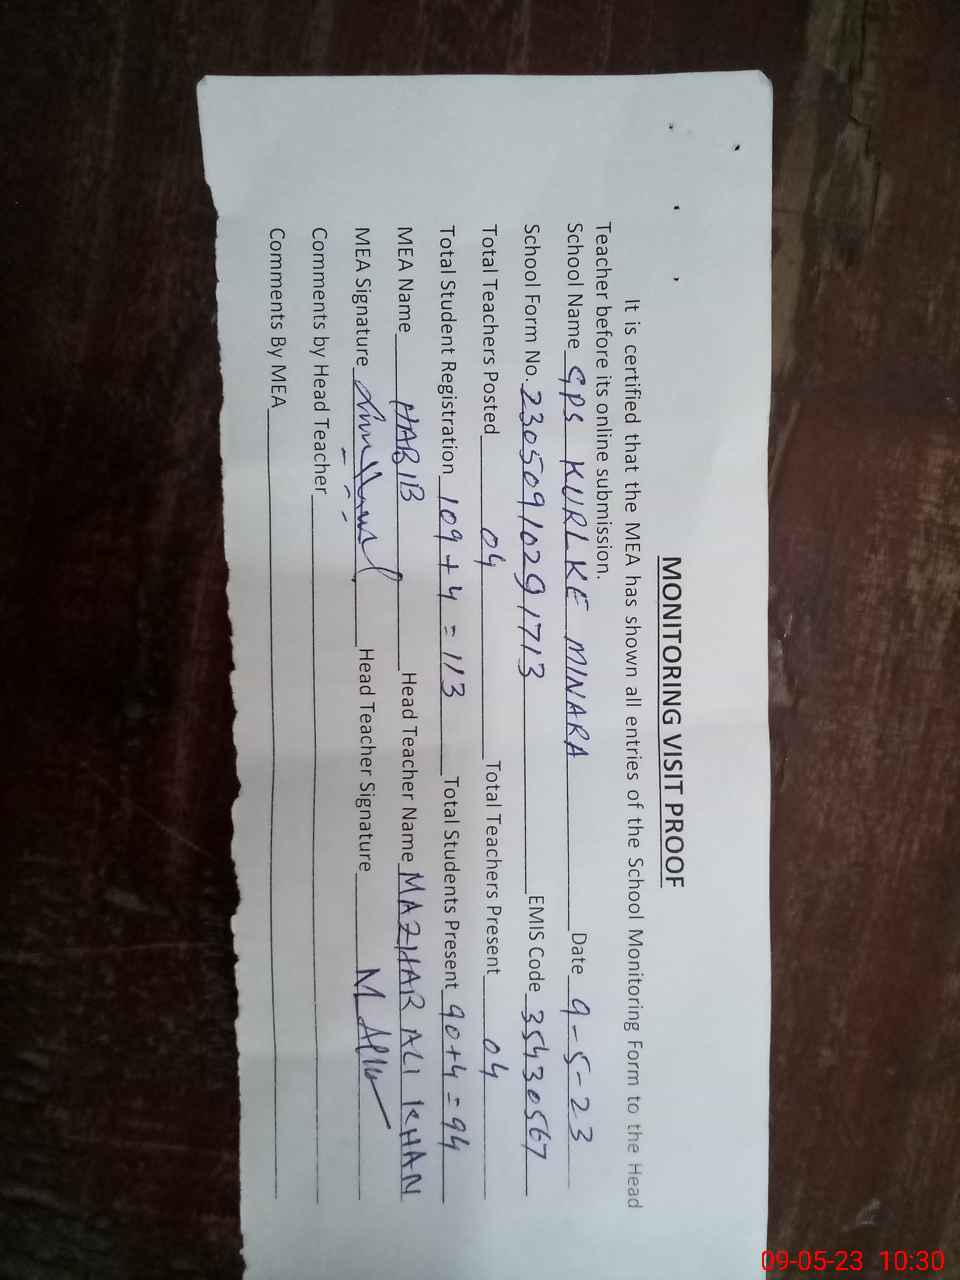 MONITORING VISIT PROOF
It is certified that the MEA has shown all entries of the School Monitoring Form to the Head
Teacher before its online submission.
School Name GPS KURLKE MINARA Date 9-5-23
School Form No. 23050910291713 EMIS Code 35430567
Total Teachers Posted 04 Total Teachers Present 04
Total Student Registration 109+4=113 Total Students Present 90+4=94
MEA Name HABIB Head Teacher Name MAZHAR ALI KHAN
MEA Signature Head Teacher Signature
Comments by Head Teacher
Comments By MEA
09-05-23 10:30